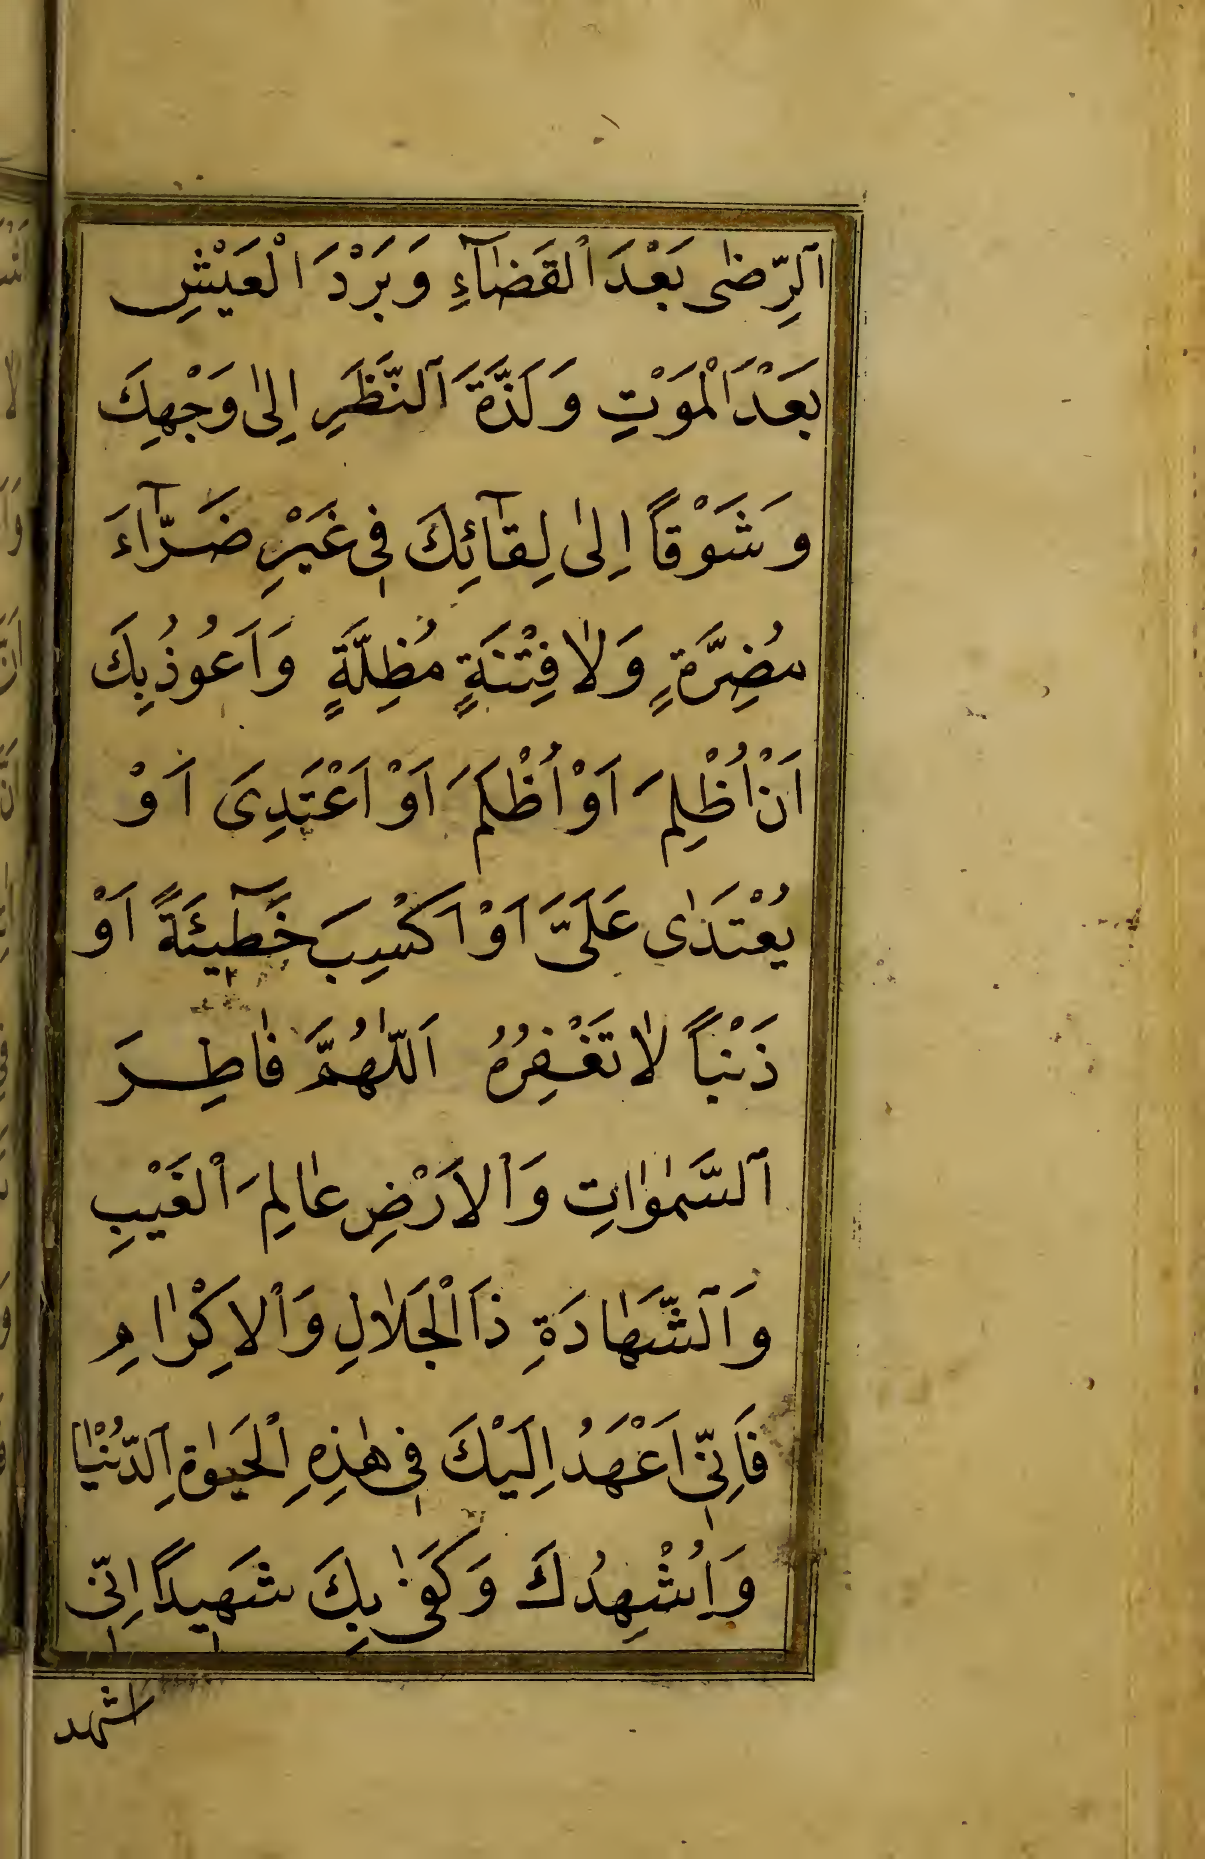 اَلرِّضٰى بَعْدَ الْقَضٰآءِ وَ بَرْدَ الْعَيْشِ
بَعْدَ الْمَوْتِ وَ لَذَّةَ النَّظَرِ اِلىٰ وَجْهِكَ
وَ شَوْقاً اِلىٰ لِقٰآئِكَ فى غَيْرِ ضَرّٰآءَ
مُضِرَّةٍ وَلٰا فِتْنَةٍ مُظِلَّةٍ وَاَعُوذُ بِكَ
اَنْ اُظْلِمَ اَوْ اُظْلَمَ اَوْ اَعْتَدِىَ اَوْ
يُعْتَدٰى عَلَىَّ اَوْ اَكْسِبَ خَطٓيئَةً اَوْ
ذَنْباً لٰا تَغْفِرُهُ اَللّٰهُمَّ فٰاطِرَ
اَلسَّمٰوٰاتِ وَالْاَرْضِ عٰالِمَ الْغَيْبِ
وَالشَّهٰادَةِ ذَاالْجَلٰالِ وَالْاِكْرٰامِ
فَاِنّى اَعْهَدُ اِلَيْكَ فى هٰذِهِ الْحَيٰوةِ الدُّنْيٰا
وَاُشْهِدُكَ وَ كَفىٰ بِكَ شَهيداً اِنّى
اشهد